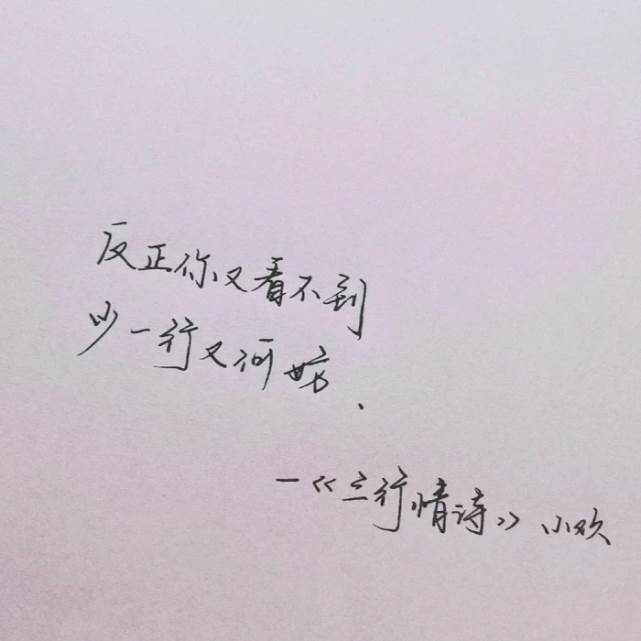 反正你又看不到
少一行又何妨、
一《三行情诗》小欢